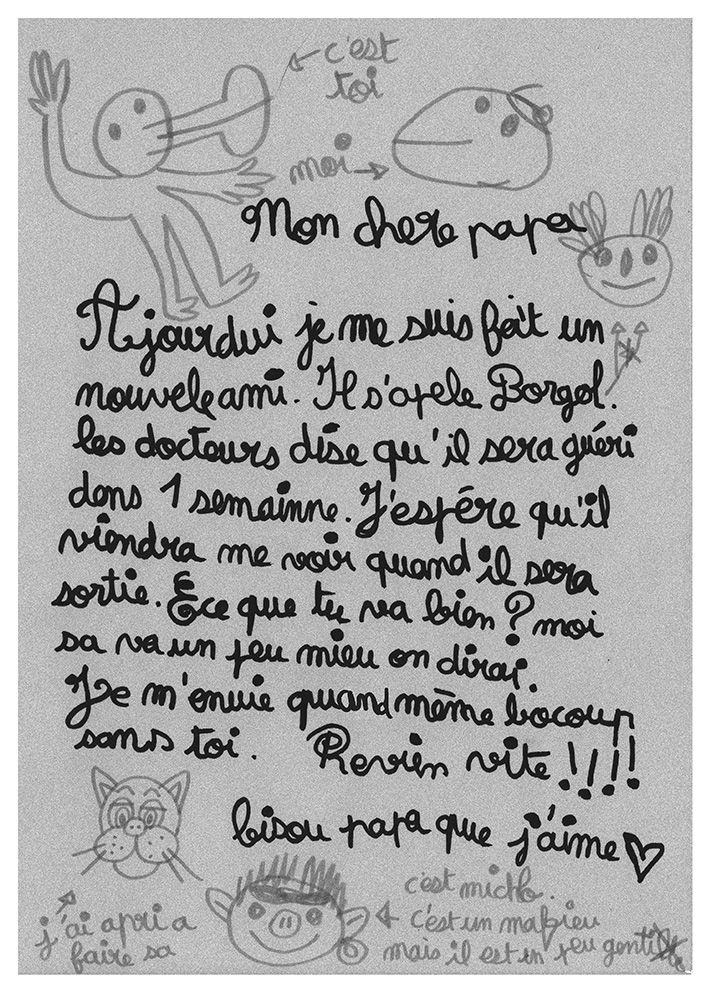 c'est
toi
moi
Mon chere papa
Ajourdui je me suis fait un
nouvele ami. Il s'apele Borgol.
les docteurs dise qu'il sera guéri
dans 1 semainne. J'espére qu'il
viendra me voir quand il sera
sortie. Éce que tu va bien ? moi
sa va un peu mieu on dirai.
Je m'ennuie quand même bocoup
sans toi. Revien vite !!!!
bisou papa que j'aime
j'ai apri a
faire sa
c'est michto.
c'est un mafieu
mais il est un peu genti